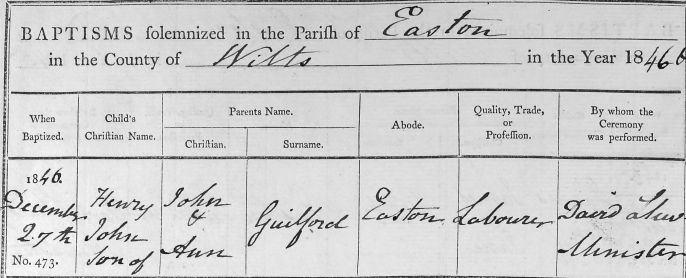 BAPTISMS solemnized in the Parish of Easton
in the County of Wilts in the Year 1846
When Baptized.
Child's Christian Name.
Parents Name.
Christian.
Surname.
Abode.
Quality, Trade, or Profession.
By whom the Ceremony was performed.
1846.
December
27th
No. 473.
Henry
John
Son of
John
&
Ann
Guilford
Easton
Labourer
David
Minister